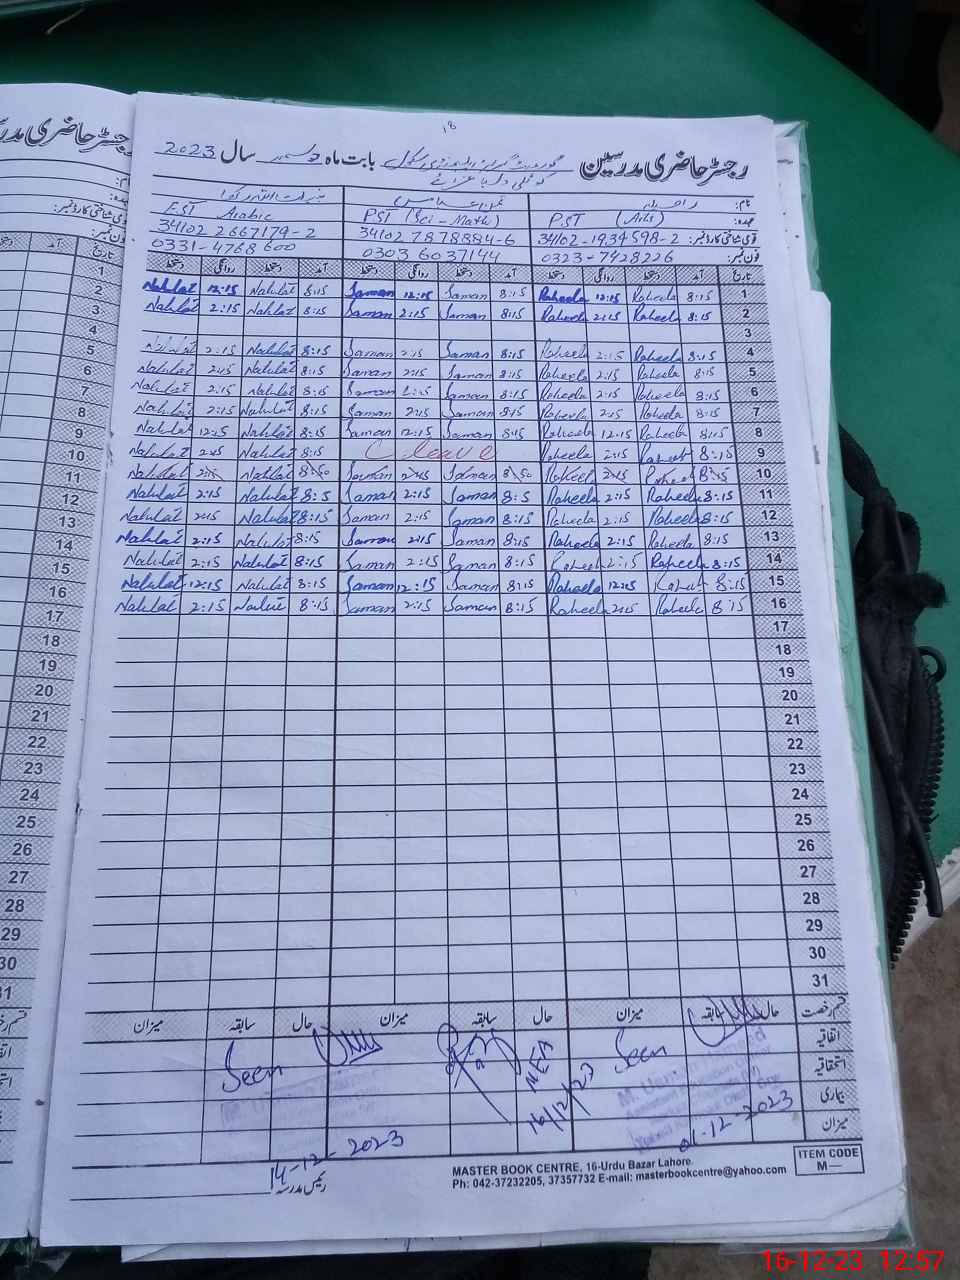 18
رجسٹر حاضری مدرسین بابت ماہ دسمبر سال 2023
نام: راحیلہ
عہدہ: PST (Arts) PST (Sci - Math) EST Arabic
قومی شناختی کارڈ نمبر: 34102-1934598-2 34102 7878884-6 34102 2667179-2
فون نمبر: 0323-7428226 0303 6037144 0331-4768600
تاریخ آمد دستخط روانگی دستخط آمد دستخط روانگی دستخط آمد دستخط روانگی دستخط
1 8:15 Raheela 12:15 Raheela 8:15 Saman 12:15 Saman 8:15 Nahlat 12:15 Nahlat
2 8:15 Raheela 2:15 Raheela 8:15 Saman 2:15 Saman 8:15 Nahlat 2:15 Nahlat
3
4 8:15 Raheela 2:15 Raheela 8:15 Saman 2:15 Saman 8:15 Nahlat 2:15 Nahlat
5 8:15 Raheela 2:15 Raheela 8:15 Saman 2:15 Saman 8:15 Nahlat 2:15 Nahlat
6 8:15 Raheela 2:15 Raheela 8:15 Saman 2:15 Saman 8:15 Nahlat 2:15 Nahlat
7 8:15 Raheela 2:15 Raheela 8:15 Saman 2:15 Saman 8:15 Nahlat 2:15 Nahlat
8 8:15 Raheela 12:15 Raheela 8:15 Saman 12:15 Saman 8:15 Nahlat 12:15 Nahlat
9 8:15 Raheela 2:15 Raheela C leave 8:15 Nahlat 2:15 Nahlat
10 Raheela Saman Saman Nahlat Nahlat
11 8:15 Raheela 2:15 Raheela 8:5 Saman 2:15 Saman 8:5 Nahlat 2:15 Nahlat
12 8:15 Raheela 2:15 Raheela 8:15 Saman 2:15 Saman 8:15 Nahlat 2:15 Nahlat
13 8:15 Raheela 2:15 Raheela 8:15 Saman 2:15 Saman 8:15 Nahlat 2:15 Nahlat
14 8:15 Raheela 2:15 Raheela 8:15 Saman 2:15 Saman 8:15 Nahlat 2:15 Nahlat
15 8:15 12:15 Raheela 8:15 Saman 12:15 Saman 8:15 Nahlat 12:15 Nahlat
16 8:15 Raheela 2:15 Raheela 8:15 Saman 2:15 Saman 8:15 2:15 Nahlat
17
18
19
20
21
22
23
24
25
26
27
28
29
30
31
قسم رخصت حال سابقہ میزان حال سابقہ میزان حال سابقہ میزان
اتفاقیہ Seen Seen
استحقاقیہ NEA
بیماری 16/12/23
میزان 01-12-2023 14-12-2023
رئیس مدرسہ
MASTER BOOK CENTRE, 16-Urdu Bazar Lahore.
Ph: 042-37232205, 37357732 E-mail: masterbookcentre@yahoo.com
ITEM CODE
M—
16-12-23 12:57